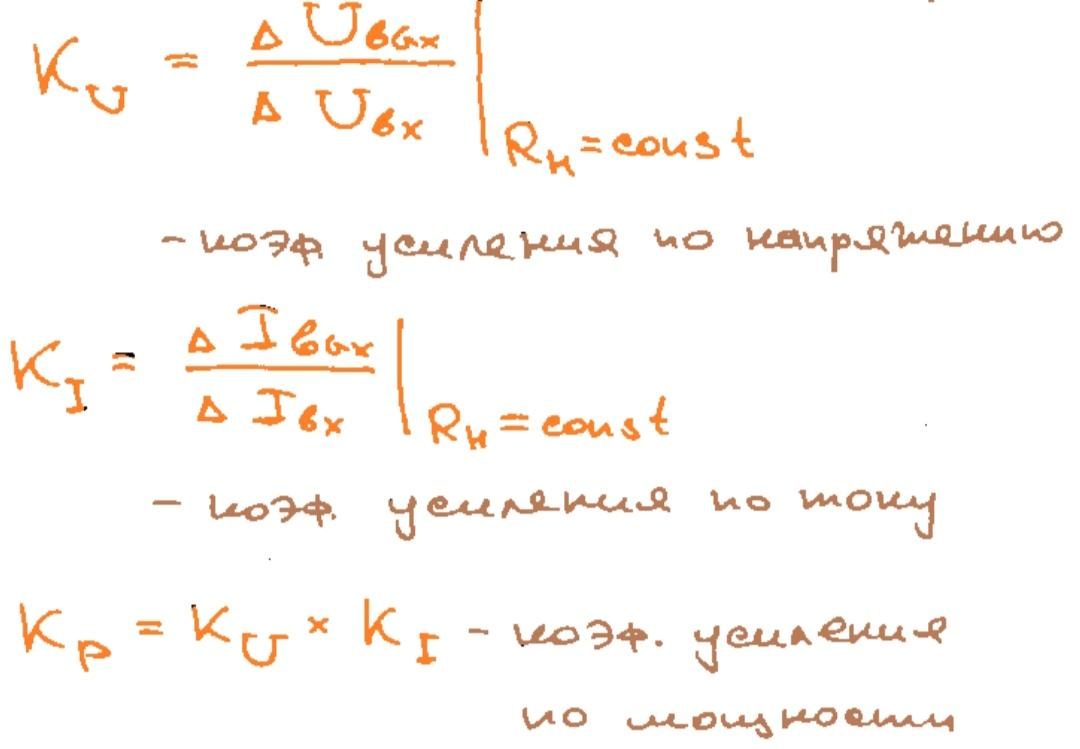 K_U = ΔU_вых / ΔU_вх | R_н = const
- коэф усиления по напряжению
K_I = ΔI_вых / ΔI_вх | R_н = const
- коэф. усиления по току
K_P = K_U × K_I - коэф. усиления
по мощности